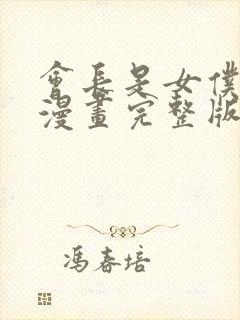 會長是女僕
漫畫完整版
馮春培